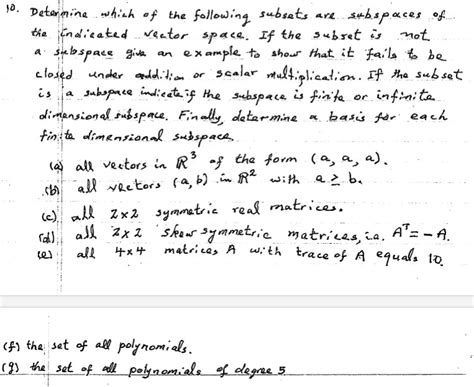 10. Determine which of the following subsets are subspaces of
the indicated vector space. If the subset is not
a subspace give an example to show that it fails to be
closed under addition or scalar multiplication. If the subset
is a subspace indicate if the subspace is finite or infinite
dimensional subspace. Finally, determine a basis for each
finite dimensional subspace.
(a) all vectors in R³ of the form (a, a, a).
(b) all vectors (a, b) in R² with a ≥ b.
(c) all 2x2 symmetric real matrices.
(d) all 2x2 skew symmetric matrices, i.e. Aᵀ = -A.
(e) all 4x4 matrices A with trace of A equals 10.
(f) the set of all polynomials.
(g) the set of all polynomials of degree 5